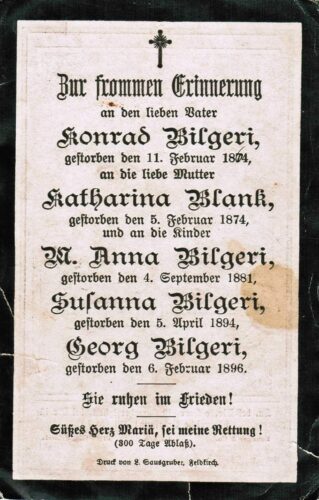 Zur frommen Erinnerung
an den lieben Vater
Konrad Bilgeri,
gestorben den 11. Februar 1874,
an die liebe Mutter
Katharina Blank,
gestorben den 5. Februar 1874,
und an die Kinder
M. Anna Bilgeri,
gestorben den 4. September 1881,
Susanna Bilgeri,
gestorben den 5. April 1894,
Georg Bilgeri,
gestorben den 6. Februar 1896.
Sie ruhen im Frieden!
Süßes Herz Mariä, sei meine Rettung!
(300 Tage Ablaß.)
Druck von L. Sausgruber, Feldkirch.